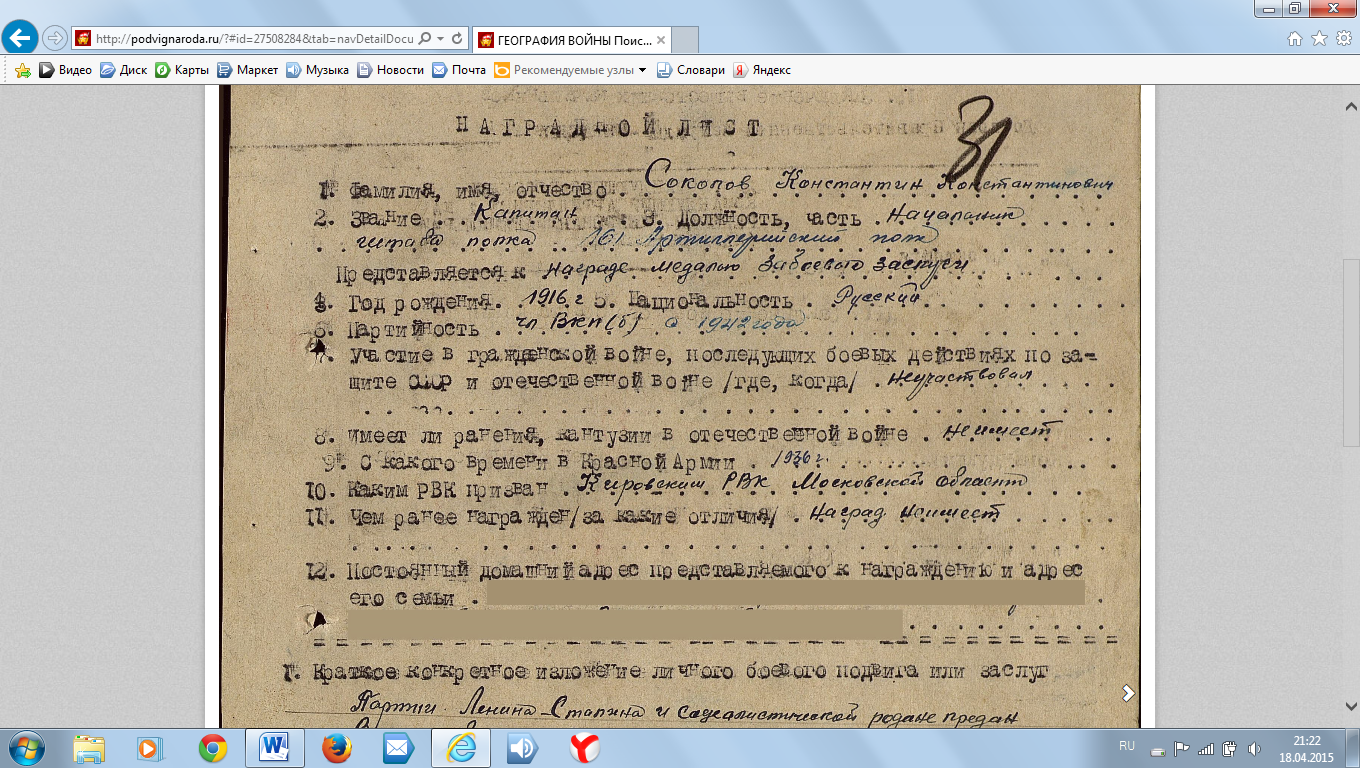 http://podvignaroda.ru/?#id=27508284&tab=navDetailDocu
ГЕОГРАФИЯ ВОЙНЫ Поис...
Видео Диск Карты Маркет Музыка Новости Почта Рекомендуемые узлы Словари Яндекс
НАГРАДНОЙ ЛИСТ
31
1. Фамилия, имя, отчество Соколов Константин Константинович
2. Звание Капитан 3. Должность, часть Начальник
штаба полка 161 Артиллерийский полк
Представляется к награде медалью За боевые заслуги
4. Год рождения 1916 г 5. Национальность Русский
6. Партийность чл ВКП(б) с 1942 года
7. Участие в гражданской войне, последующих боевых действиях по за-
щите СССР и отечественной войне /где, когда/ неучаствовал
8. имеет ли ранения, кантузии в отечественной войне неимеет
9. С какого времени в Красной Армии 1936 г.
10. Каким РВК призван Кировским РВК Московской области
11. Чем ранее награжден/за какие отличия/ Наград неимеет
12. Постоянный домашний адрес представляемого к награждению и адрес
его семьи
1. Краткое конкретное изложение личного боевого подвига или заслуг
Партии Ленина-Сталина и социалистической родине предан
RU
21:22
18.04.2015